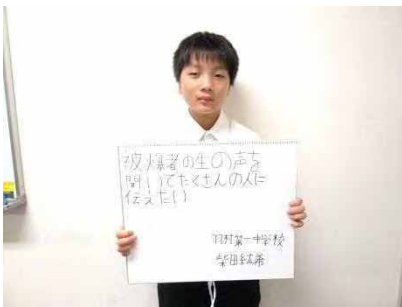 被爆者の生の声を
聞いてたくさんの人に
伝えたい
羽村第一中学校
柴田結希